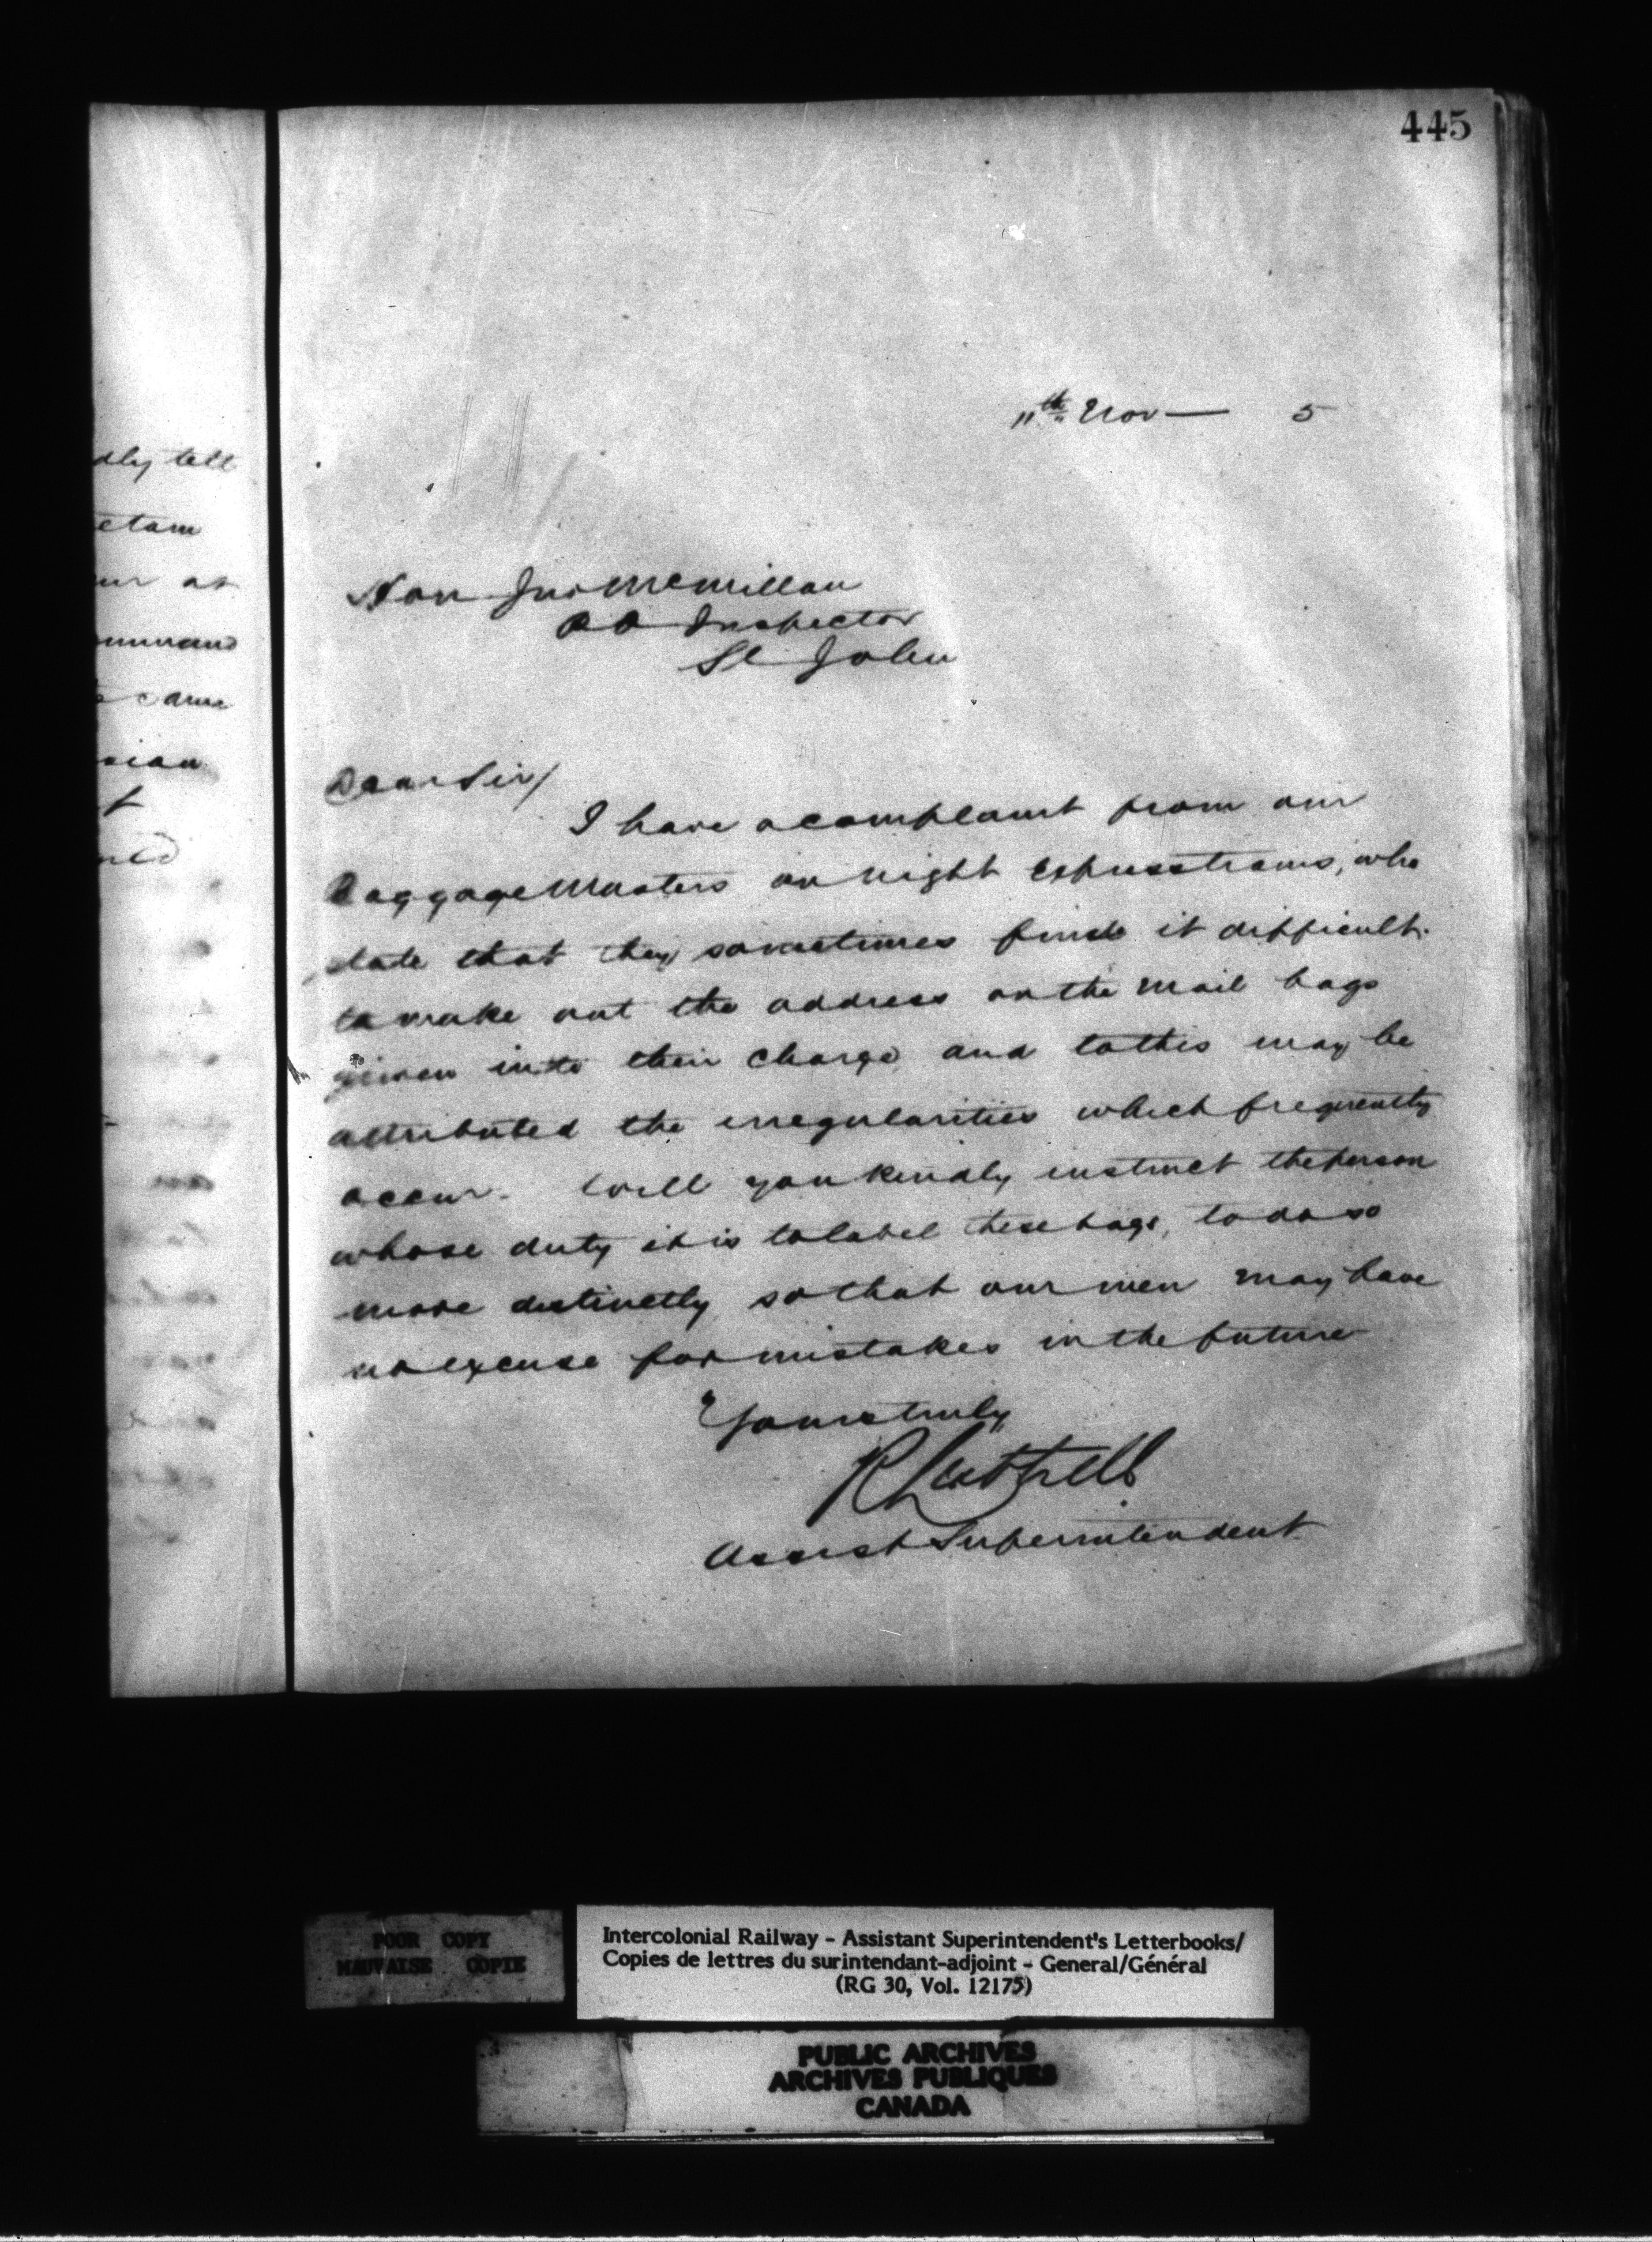 445
dly tell
etam
ur at
ommand
came
sian
t
ned
11th Nov — 5
Hon Jno McMillan
P O Inspector
St John
Dear Sir/
I have a complaint from our
Baggage Masters on night express trains, who
state that they sometimes find it difficult
to make out the address on the mail bags
given into their charge and to this may be
attributed the irregularities which frequently
occur. Will you kindly instruct the person
whose duty it is to label these bags, to do so
more distinctly so that our men may have
no excuse for mistakes in the future
Yours truly
R Luttrell
Assist Superintendent
POOR COPY
MAUVAISE COPIE
Intercolonial Railway - Assistant Superintendent's Letterbooks/
Copies de lettres du surintendant-adjoint - General/Général
(RG 30, Vol. 12175)
PUBLIC ARCHIVES
ARCHIVES PUBLIQUES
CANADA